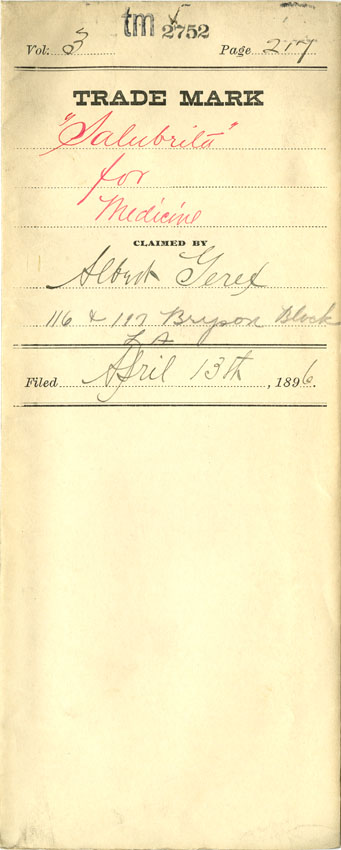 tm 2752
Vol: 3 Page 217
TRADE MARK
"Salubrita"
for
Medicine
CLAIMED BY
Albert Gerex
116 & 117 Bryson Block
LA
Filed April 13th, 1896.